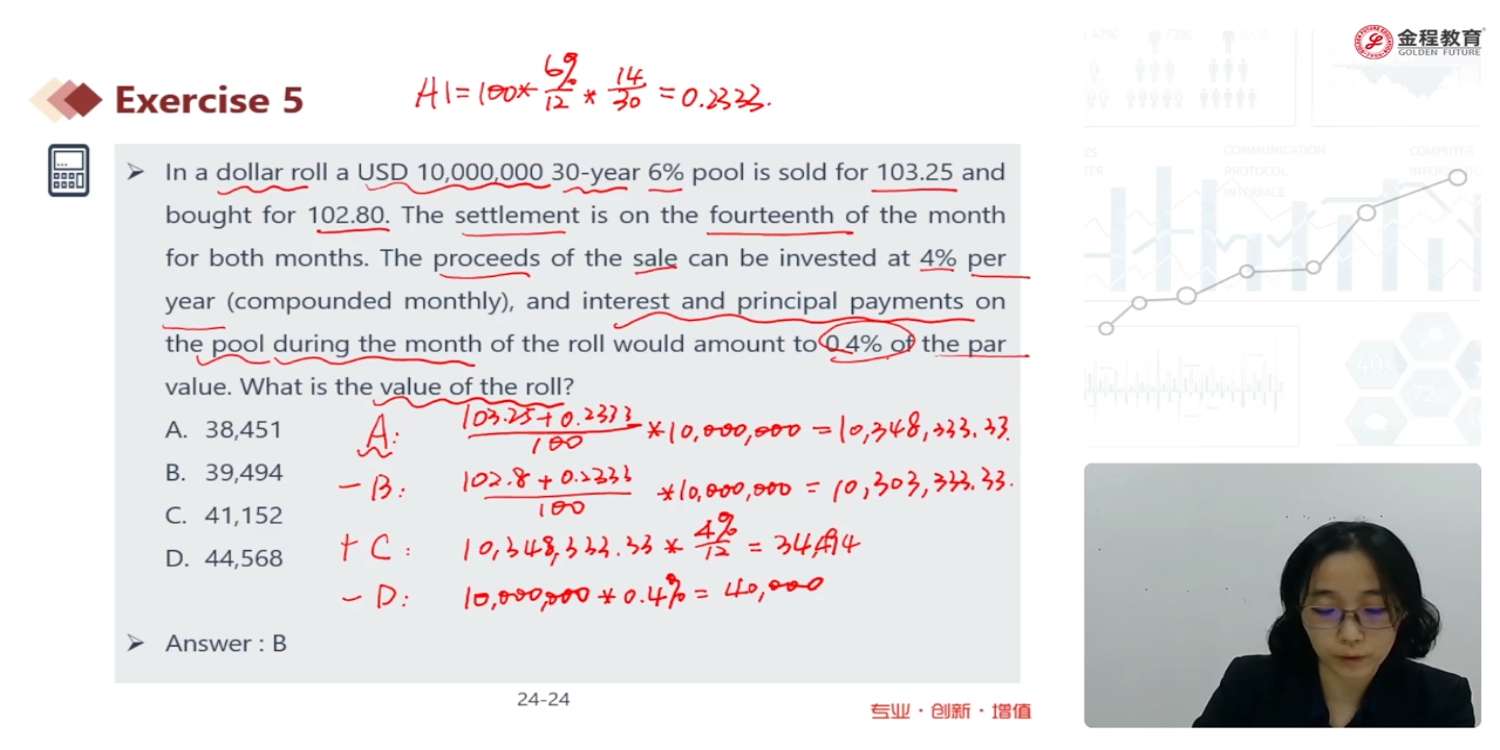 金程教育
GOLDEN FUTURE
Exercise 5
AI = 100 * 6%/12 * 14/30 = 0.2333.
➢ In a dollar roll a USD 10,000,000 30-year 6% pool is sold for 103.25 and
bought for 102.80. The settlement is on the fourteenth of the month
for both months. The proceeds of the sale can be invested at 4% per
year (compounded monthly), and interest and principal payments on
the pool during the month of the roll would amount to 0.4% of the par
value. What is the value of the roll?
A. 38,451
B. 39,494
C. 41,152
D. 44,568
A: (103.25+0.2333)/100 * 10,000,000 = 10,348,333.33.
- B: (102.8+0.2333)/100 * 10,000,000 = 10,303,333.33.
+ C: 10,348,333.33 * 4%/12 = 34,494
- D: 10,000,000 * 0.4% = 40,000
➢ Answer : B
24-24
专业·创新·增值
COMMUNICATION
PROTOCOL